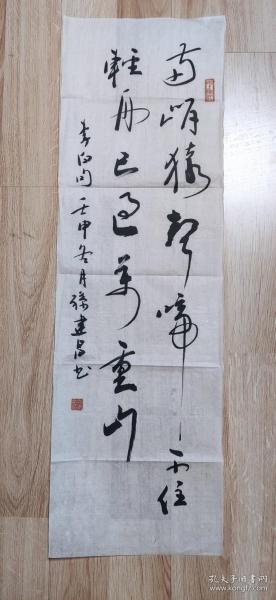 两岸猿声啼不住
轻舟已過萬重山
李白句 壬申冬月 孫建昌书
孔夫子旧书网